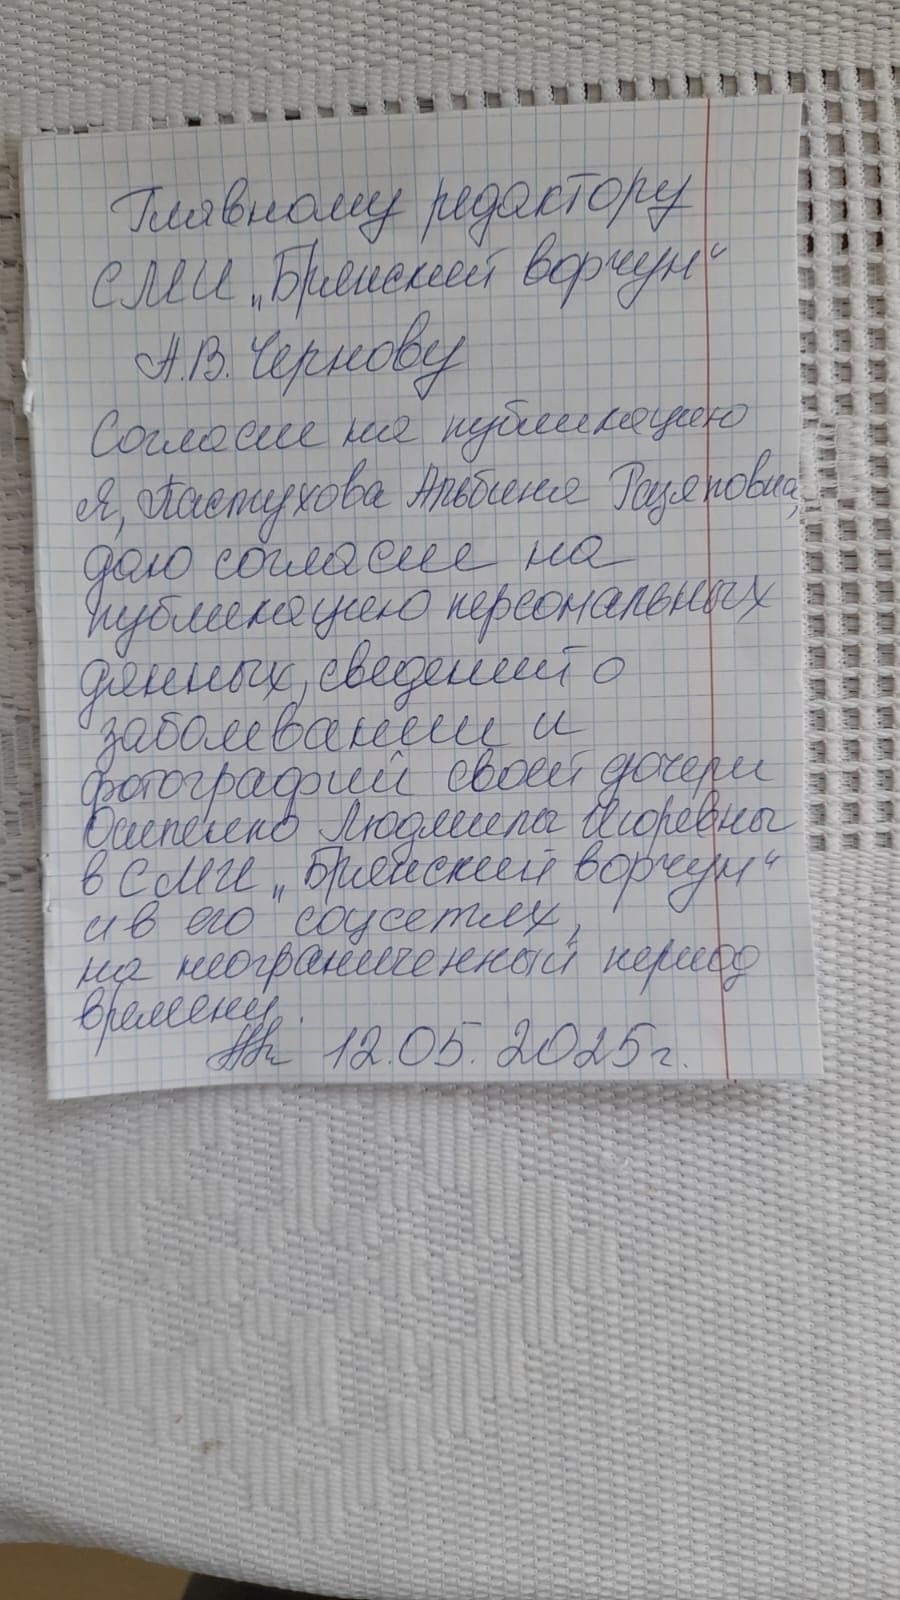 Главному редактору
СМИ „Брянский ворчун“
А.В. Чернову
Согласие на публикацию
Я, Пастухова Альбина
даю согласие на
публикацию персональных
данных, сведений о
заболевании и
фотографий своей дочери
Осипенко Людмилы Игоревны
в СМИ „Брянский ворчун“
и в его соцсетях,
на неограниченный период
времени.
12.05.2025г.